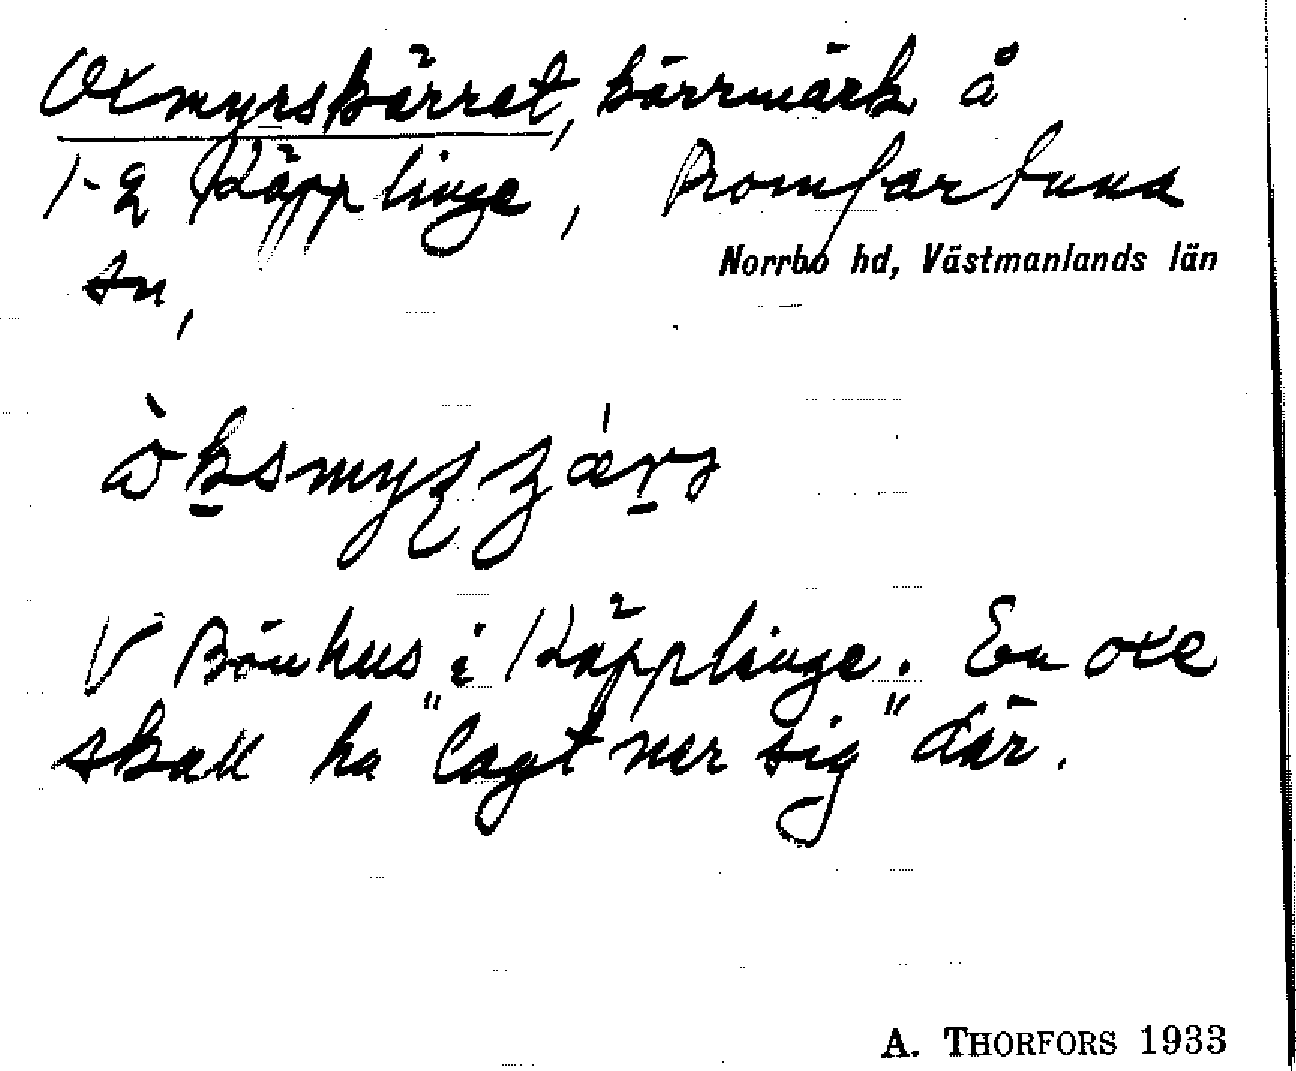 Oxmyrskärret, kärrmark å
1-2 Käpplinge, Romfartuna
Norrbo hd, Västmanlands län
sn,
V Bönhus i Käpplinge. En oxe
skall ha "lagt ner sig" där.
A. THORFORS 1933